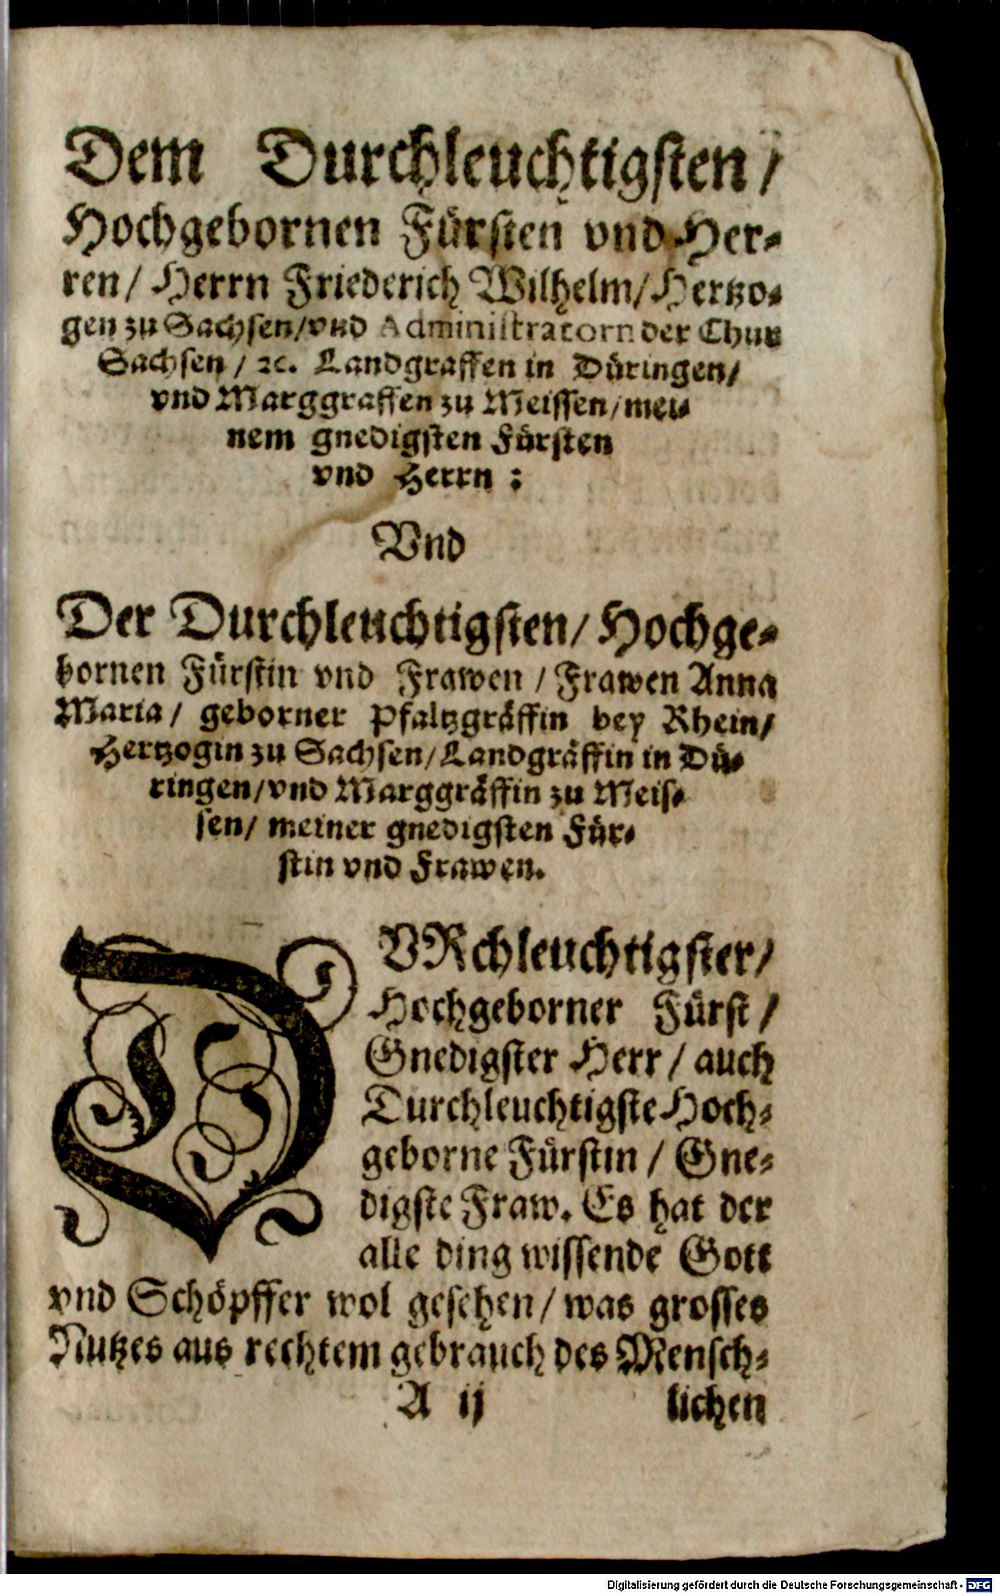 Dem Durchleuchtigsten/
Hochgebornen Fürsten vnd Her-
ren/ Herrn Friederich Wilhelm/ Hertzo-
gen zu Sachsen/ vnd Administratorn der Chur
Sachsen/ ꝛc. Landgraffen in Düringen/
vnd Marggraffen zu Meissen/ mei-
nem gnedigsten Fürsten
vnd Herrn:
Vnd
Der Durchleuchtigsten/ Hochge-
bornen Fürstin vnd Frawen/ Frawen Anna
Maria/ geborner Pfaltzgräffin bey Rhein/
Hertzogin zu Sachsen/ Landgräffin in Dü-
ringen/ vnd Marggräffin zu Meis-
sen/ meiner gnedigsten Für-
stin vnd Frawen.
DVRchleuchtigster/
Hochgeborner Fürst/
Gnedigster Herr/ auch
Durchleuchtigste Hoch-
geborne Fürstin/ Gne-
digste Fraw. Es hat der
alle ding wissende Gott
vnd Schöpffer wol gesehen/ was grosses
Nutzes aus rechtem gebrauch des Mensch-
A ij lichen
Digitalisierung gefördert durch die Deutsche Forschungsgemeinschaft - DFG